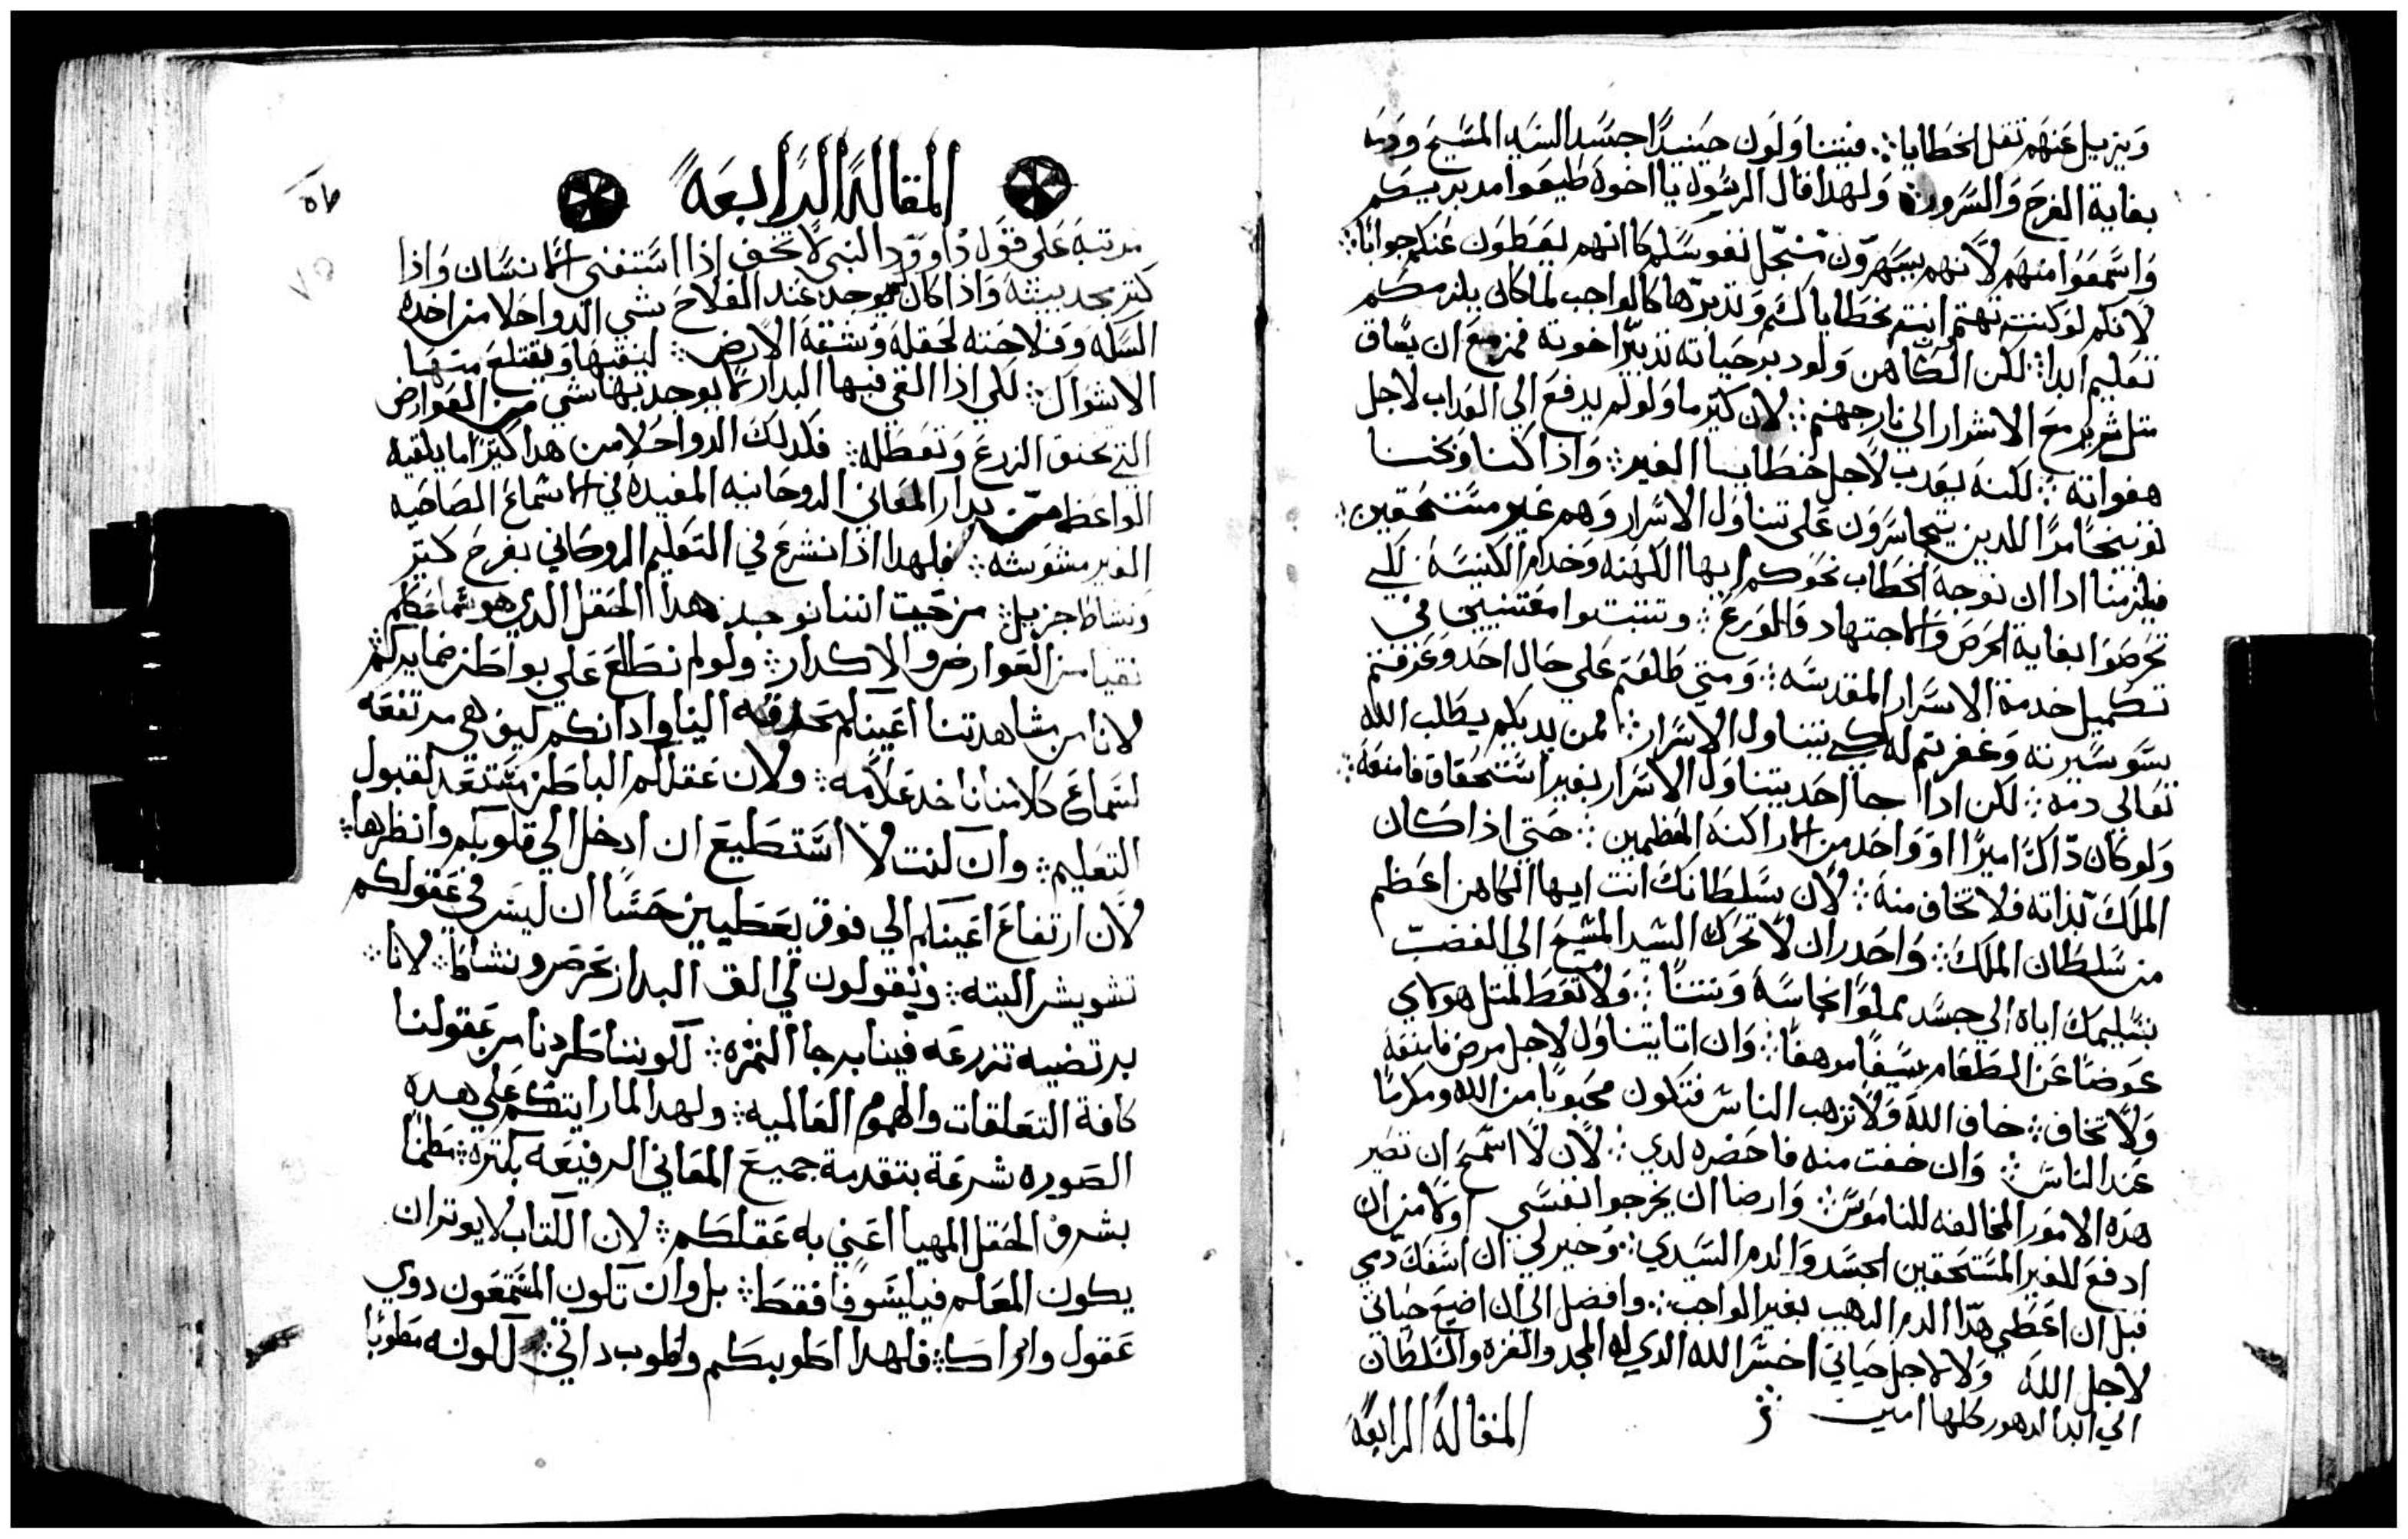 ويزيل عنهم تقل الخطايا ؛ فيتناولون حينيدًا جسد السيد المسيح ودمه
بغاية الفرح والسرور ؛ ولهدا قال الرسول يا اخوة طيعوا مدبرينكم
واسمعوا منهم لانهم يسهرون من اجل نفوسكم كانهم يعطون عنكم جوابًا ؛
لانكم لو كنتم تهتم انتم بخطاياكم وتدبرها كالواجب لما كان يلزمكم
تعليم ابدا ؛ لكن الكاهن ولو دبر حياته تدبير اخوته فمزمع ان يساق
متل شرير مع الاشرار الي نار جهنم ؛ لان كتيرًا ما ولو لم يدفع الي العداب لاجل
هفواته ؛ لكنه يعدب لاجل خطايا الغير ؛ واذا كنا وبخنا
توبيخًا مرًا اللدين يتجاسرون على تناول الاسرار وهم غير مستحقين ؛
فيلزمنا ادا ان نوجه الخطاب نحوكم ايها الكهنه وخدام الكنيسة لكي
تحرصوا بغاية الحرص والاجتهاد والورع ؛ وتتبتوا معتنيين في
تكميل خدمة الاسرار المقدسه ؛ ومتي طلعتم علي حال احد وعرفتم
بسو سيرته وغفرتم له لكي يتناول الاسرار ؛ فمن يديكم يطلب الله
تعالي دمه ؛ لكن ادا جا احد يتناول الاسرار بغير استحقاق فامنعه ؛
ولو كان داك اميرًا او واحد من الاراكنه العظمين ؛ حتي اذا كان
الملك بذاته فلا تخاف منه ؛ لان سلطانك انت ايها الكاهن اعظم
من سلطان الملك ؛ واحدر ان لا تحرك السيد المسيح الي الغضب
بتسليمك اياه الي جسد مملوًا نجاسة ونتنًا ؛ ولا تعط لمتل هولاي
عوضًا عن الطعام سيفًا مرهفًا ؛ وان اتا يتناول لاجل مرض فامنعه
ولا تخاف ؛ خاف الله ولا ترهب الناس فتكون محبوبا من الله ومكرمًا
عند الناس ؛ وان خفت منه فاحضره لدي ؛ لان لا اسمح ان تصير
هده الامور المخالفه للناموس ؛ وارضا ان يخرجوا نفسي اولا من ان
ادفع للغير المستحقين الجسد والدم السيدي ؛ وخير لي ان اسفك دمي
قبل ان اعطي هدا الدم الرهيب بغير الواجب ؛ وافضل الي ان اضيع حياتي
لاجل الله ولا لاجل حياتي اخسر الله الدي له المجد والعزه والسلطان
الي ابد الدهور كلها امين
المقالة الرابعة
المقالة الرابعة
مرتبة على قول داوود النبي لا تخف اذا استغني الانسان واذا
كتر مجد بيته واذا كان يوجد عند الفلاح شي الدواحلا من اخده
السله وفلاحته لحقله وشقة الارض ؛ لينقيها ويقتلع منها
الاشواك ؛ لكي اذا القي فيها البدار لا يوجد بها شي من العوارض
التي تخنق الزرع وتعطله ؛ فكدلك الدواحلا من هدا كتيرًا ما يلقيه
الواعظ من بدار المعاني الروحانيه المفيده في الاسماع الصاحيه
الغير مشوشه ؛ فلهدا ادا نشرع في التعليم الروحاني بفرح كتير
ونشاط جزيل ؛ من حيت اننا نوجد هدا الحقل الدي هو سماعكم
نقيا من العوارض والاكدار ؛ ولو لم نطلع علي بواطن ضمايركم
لانا من مشاهدتنا اعينكم محدقه الينا وادانكم كيف هي مرتفعه
لسماع كلامنا ناخد علامه ؛ ولان عقلكم الباطن مستعد لقبول
التعليم ؛ وان كنت لا استطيع ان ادخل الي قلوبكم وانظرها ؛
لان ارتفاع اعينكم الي فوق يعطيين حسًا ان ليس في عقولكم
تشويش البته ؛ وتقولون لي الق البدار بحرص ونشاط ؛ لانا
برتضيه تزرعه فينا برجا التمره ؛ لكوننا طردنا من عقولنا
كافة التعلقات والهموم العالميه ؛ ولهدا لما رايتكم علي هده
الصوره شرعة بتقدمة جميع المعاني الرفيعه بكتره ؛ مطمنًا
بشرف الحقل المهيا اعني به عقلكم ؛ لان الكتاب لا يوتران
يكون المعلم فيليسوفا فقط ؛ بل وان تكون المستمعون دوي
عقول وادراك ؛ فلهدا اطوبكم واطوب داتي ؛ لكونه مطوبًا